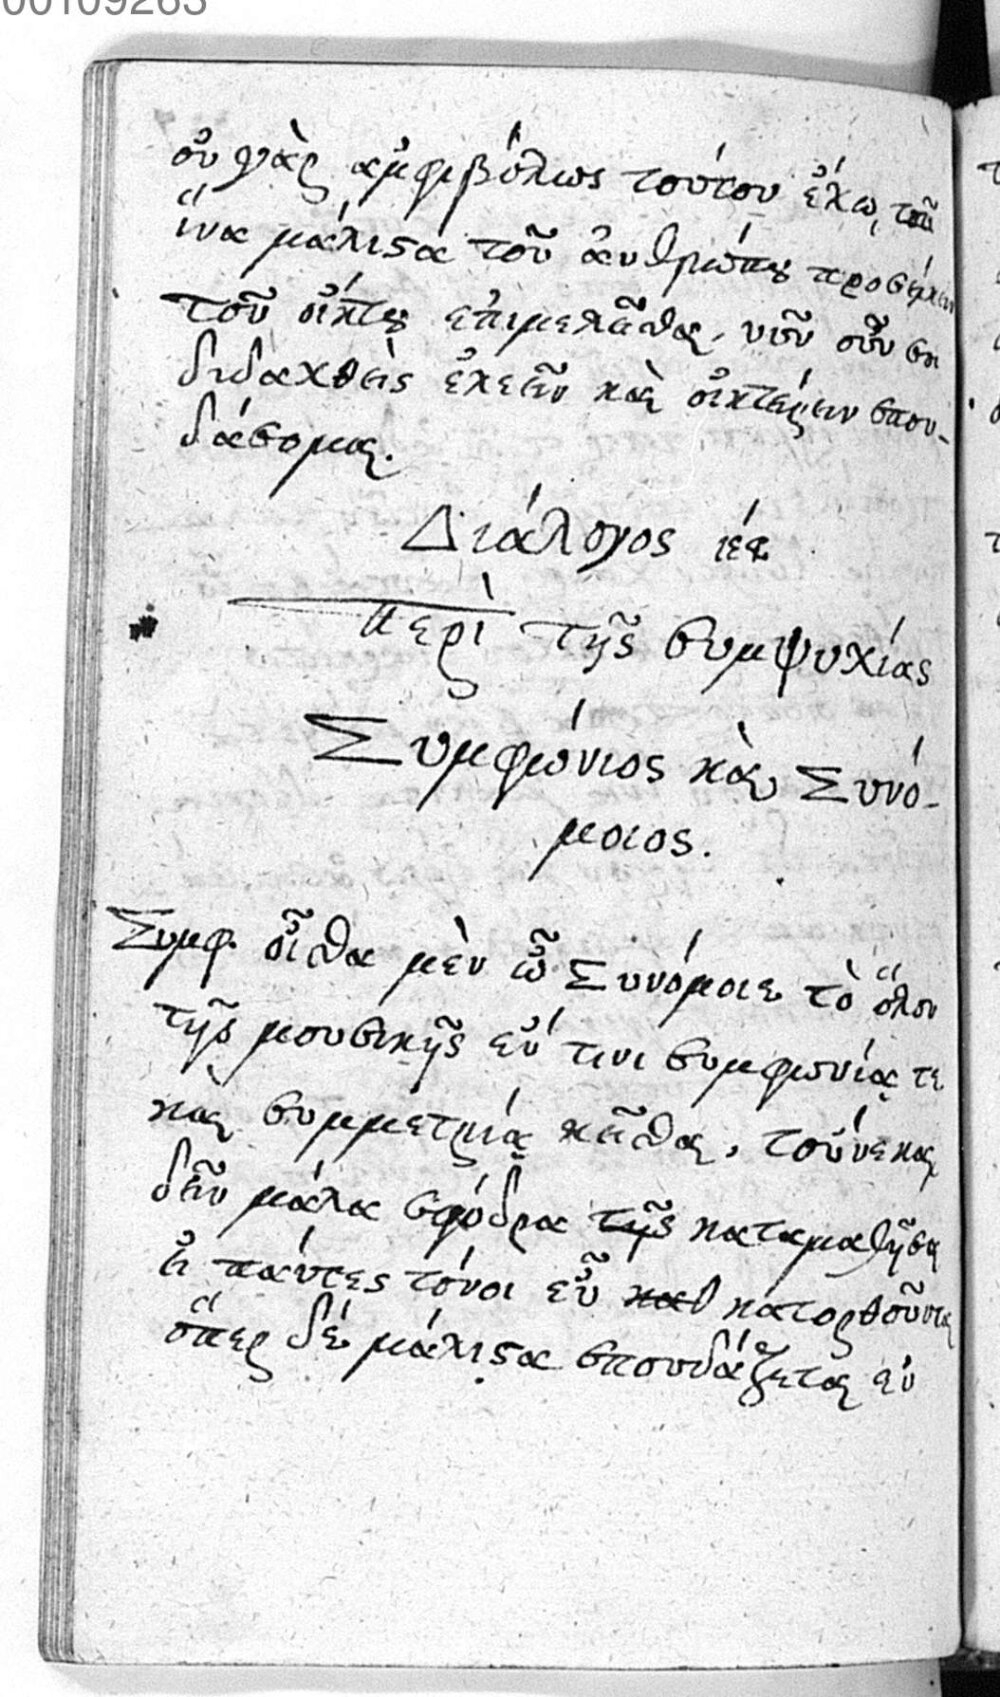 00109263
οὐ γὰρ ἀμφιβόλως τούτου ἔχω, τοῦ
ἵνα μάλιστα τοῦ ἀνθρώπου προσέχειν
τοῦ οἴκτου ἐπιμελεῖσθαι. νῦν οὖν
διδαχθεὶς ἐλεεῖν καὶ οἰκτείρειν σπου-
δάσομαι.
Διάλογος
περὶ τῆς συμψυχίας
Συμφώνιος καὶ Συνό-
μοιος.
Συμφ. οἶσθα μὲν ὦ Συνόμοιε τὸ ὅλον
τῆς μουσικῆς ἔν τινι συμφωνίᾳ τε
καὶ συμμετρίᾳ κεῖσθαι, τοὔνεκα
δεῖν μάλα σφόδρα τῆς καταμαθῆσαι
εἰ πάντες τόνοι εὖ καθ κατορθοῦνται
ὅπερ δὲ μάλιστα σπουδάζεται ἐν